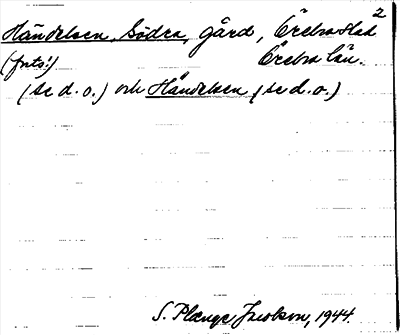 2
Händelsen, Södra, gård, Örebro stad
(forts.) Örebro län.
(se d. o.) och Händelsen (se d. o.)
S. Plænge Jacobson, 1944